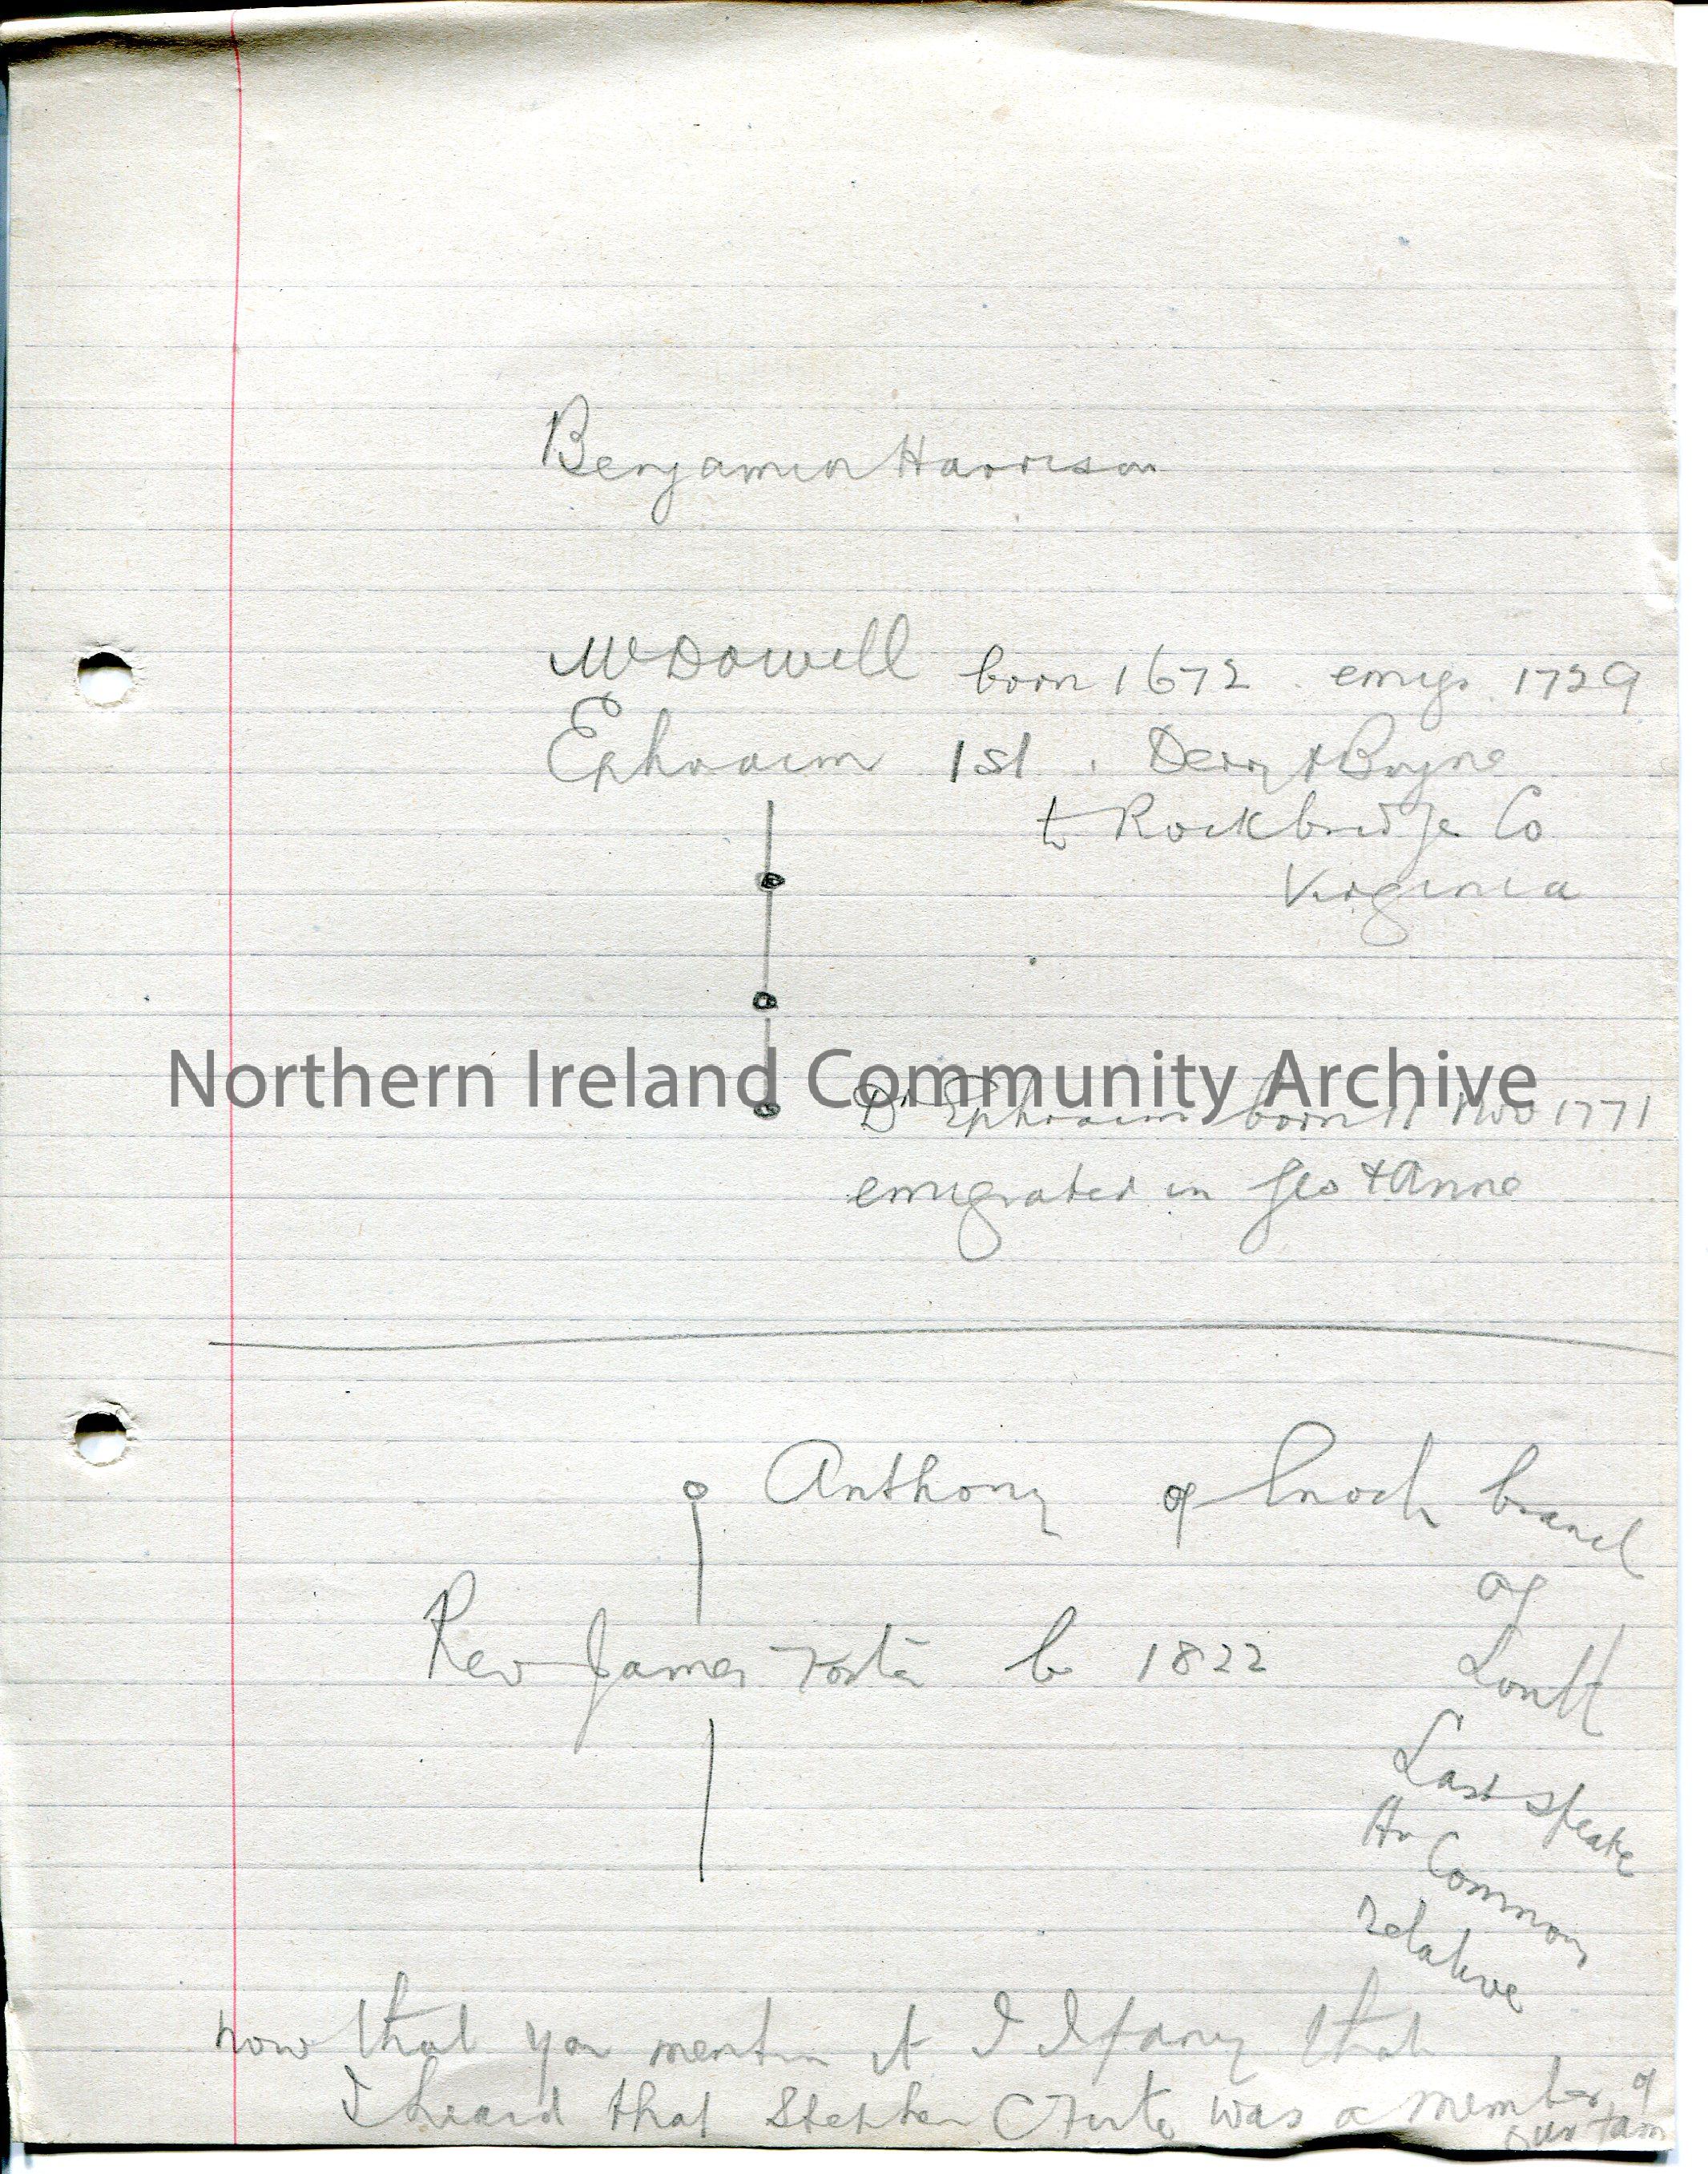 Benjamin Harrison
McDowell born 1672 . emigr. 1729
Ephraim 1st . Derry & Boyne
to Rockbridge Co
Virginia
Northern Ireland Community Archive
Dr Ephraim born 11 Nov 1771
emigrated in Geo & Anne
Anthony of branch
of
Rev James Foster b 1822
Louth
Last speake
Commons
relative
now that you mention it I fancy that
I heard that Stephen was a member of
our fam